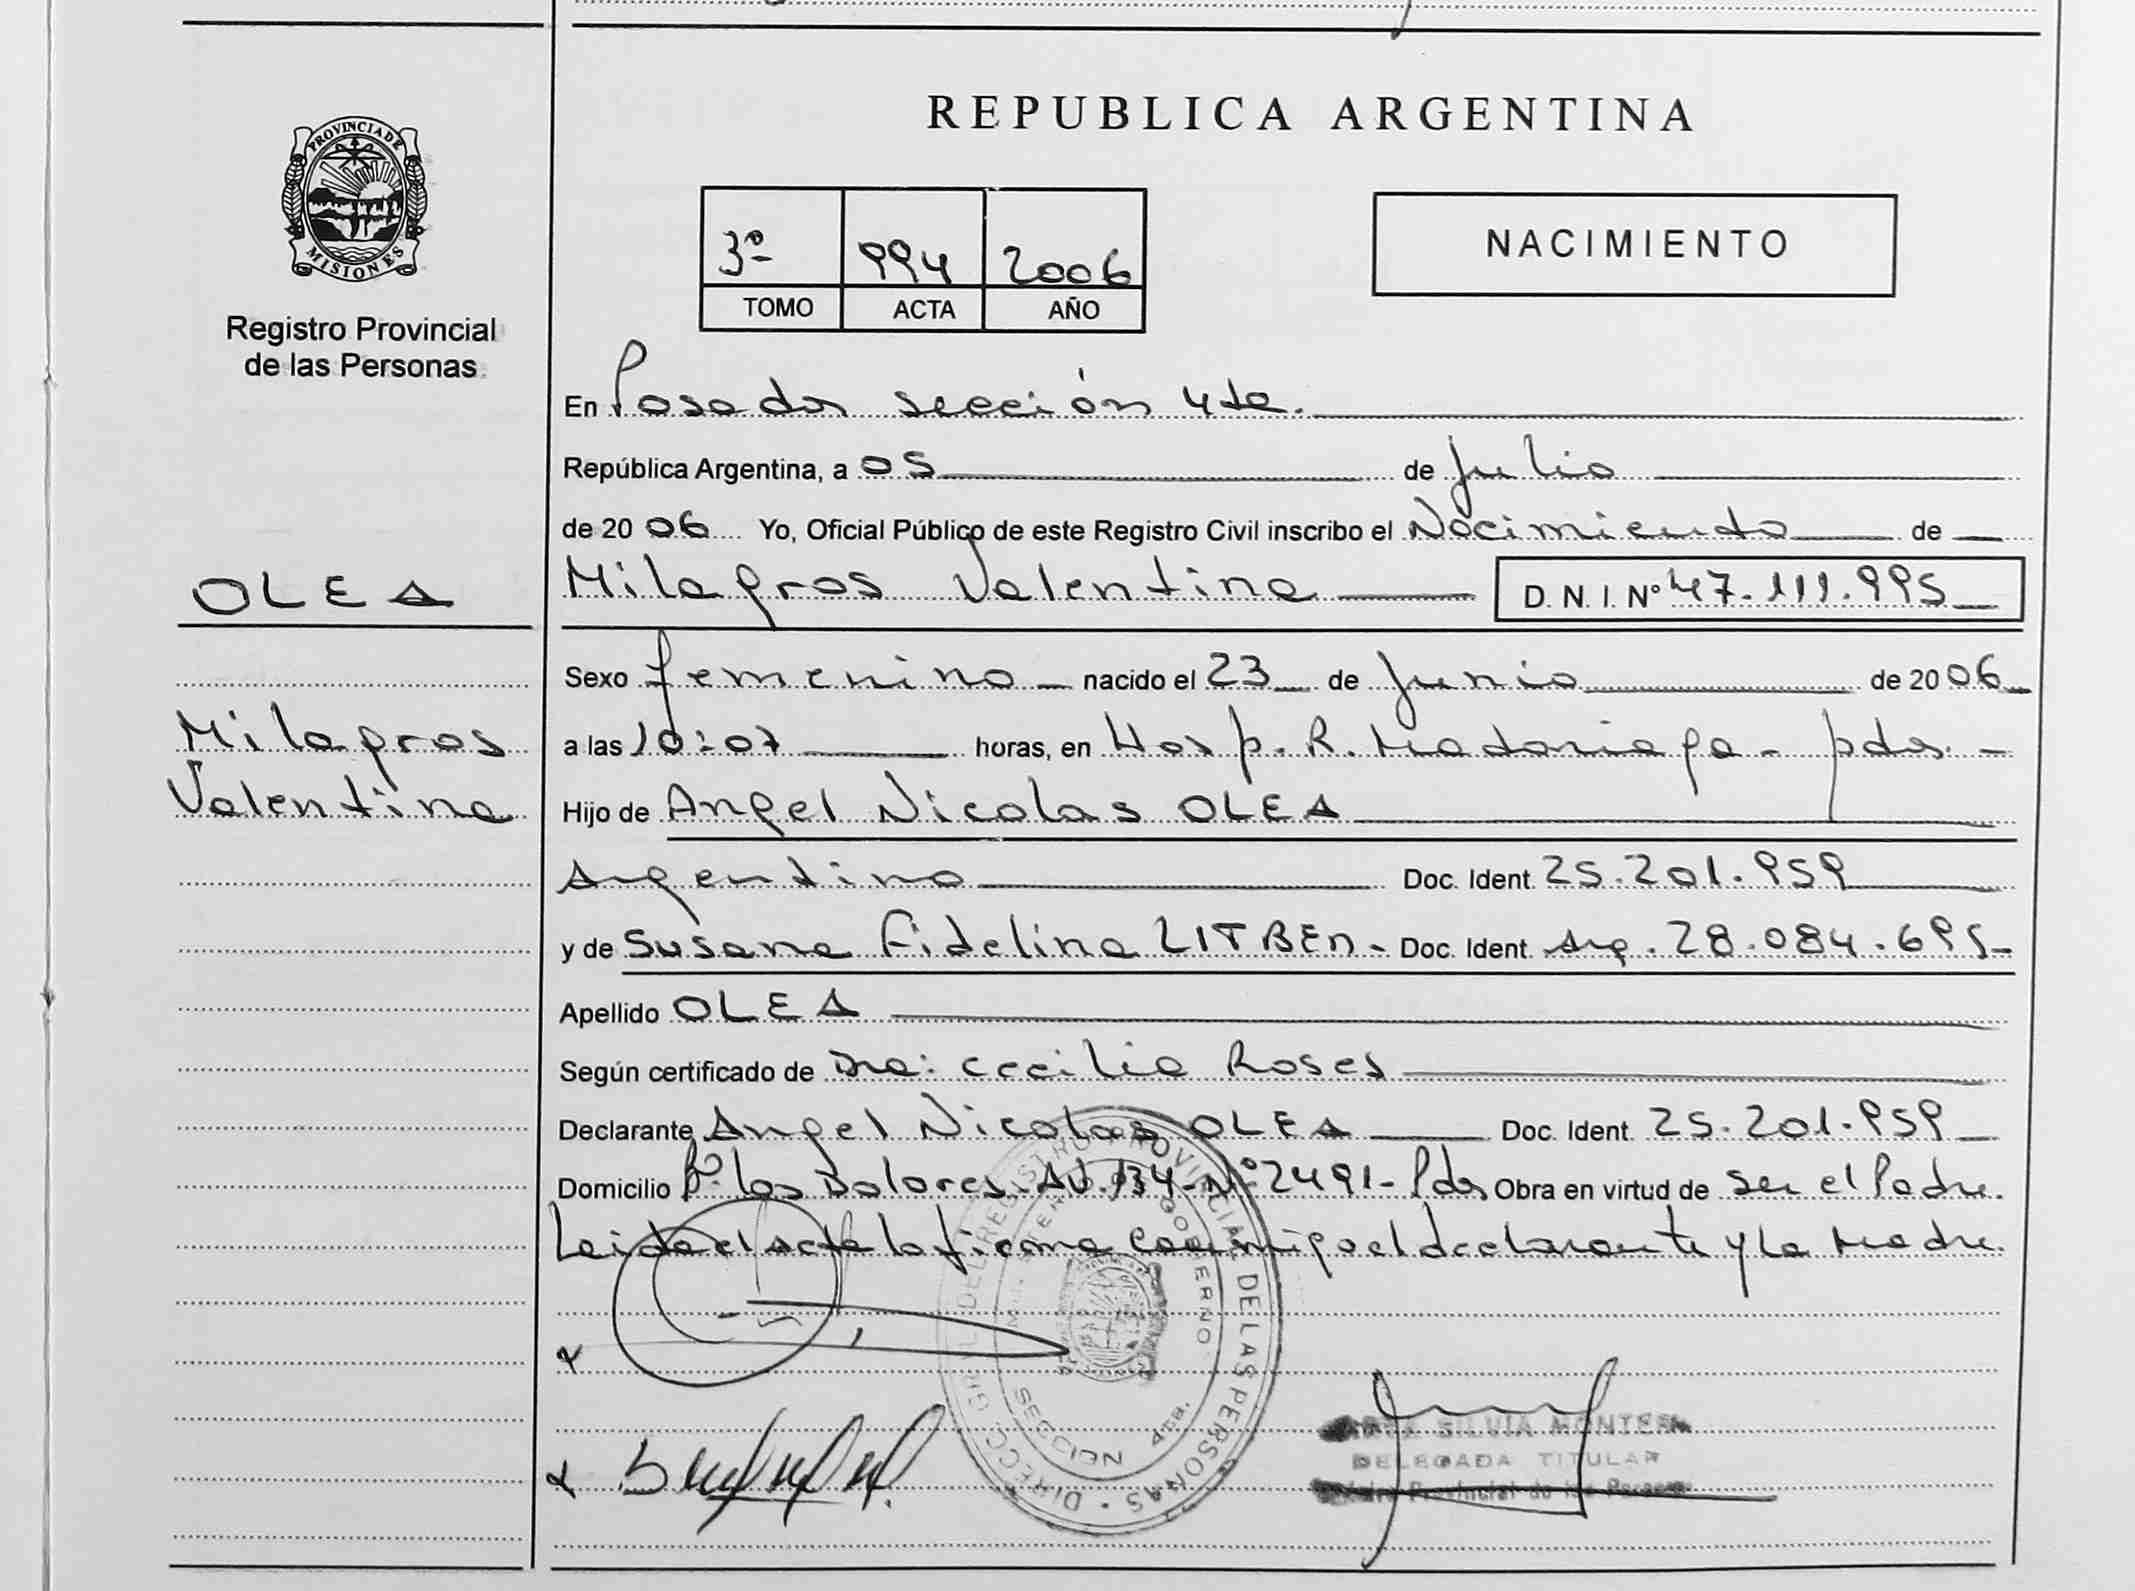 REPUBLICA ARGENTINA
PROVINCIA DE MISIONES
Registro Provincial
de las Personas
3º 994 2006
TOMO ACTA AÑO
NACIMIENTO
En Posadas sección 4ta.
República Argentina, a 05 de Julio
de 2006 Yo, Oficial Público de este Registro Civil inscribo el Nacimiento de
OLEA
Milagros Valentina D. N. I. Nº 47.111.995
Sexo femenino nacido el 23 de Junio de 2006
Milagros
Valentina
a las 10:07 horas, en Hosp. R. Madariaga - pdas. -
Hijo de Angel Nicolas OLEA
Argentino Doc. Ident. 25.201.959
y de Susana Fidelina LITBEN - Doc. Ident. Arg. 28.084.695-
Apellido OLEA
Según certificado de Dra: Cecilia Roses
Declarante Angel Nicolas OLEA Doc. Ident. 25.201.959
Domicilio Bº Los Dolores. AV. 134 - Nº 2491 - Pdas Obra en virtud de ser el Padre.
Leida el acta la firma conmigo el declarante y la Madre.
DIRECC. GRAL DEL REGISTRO PROVINCIAL DE LAS PERSONAS
GOBIERNO
SECCION 4ta.
SILVIA MONTERO
DELEGADA TITULAR
Provincial de las Personas